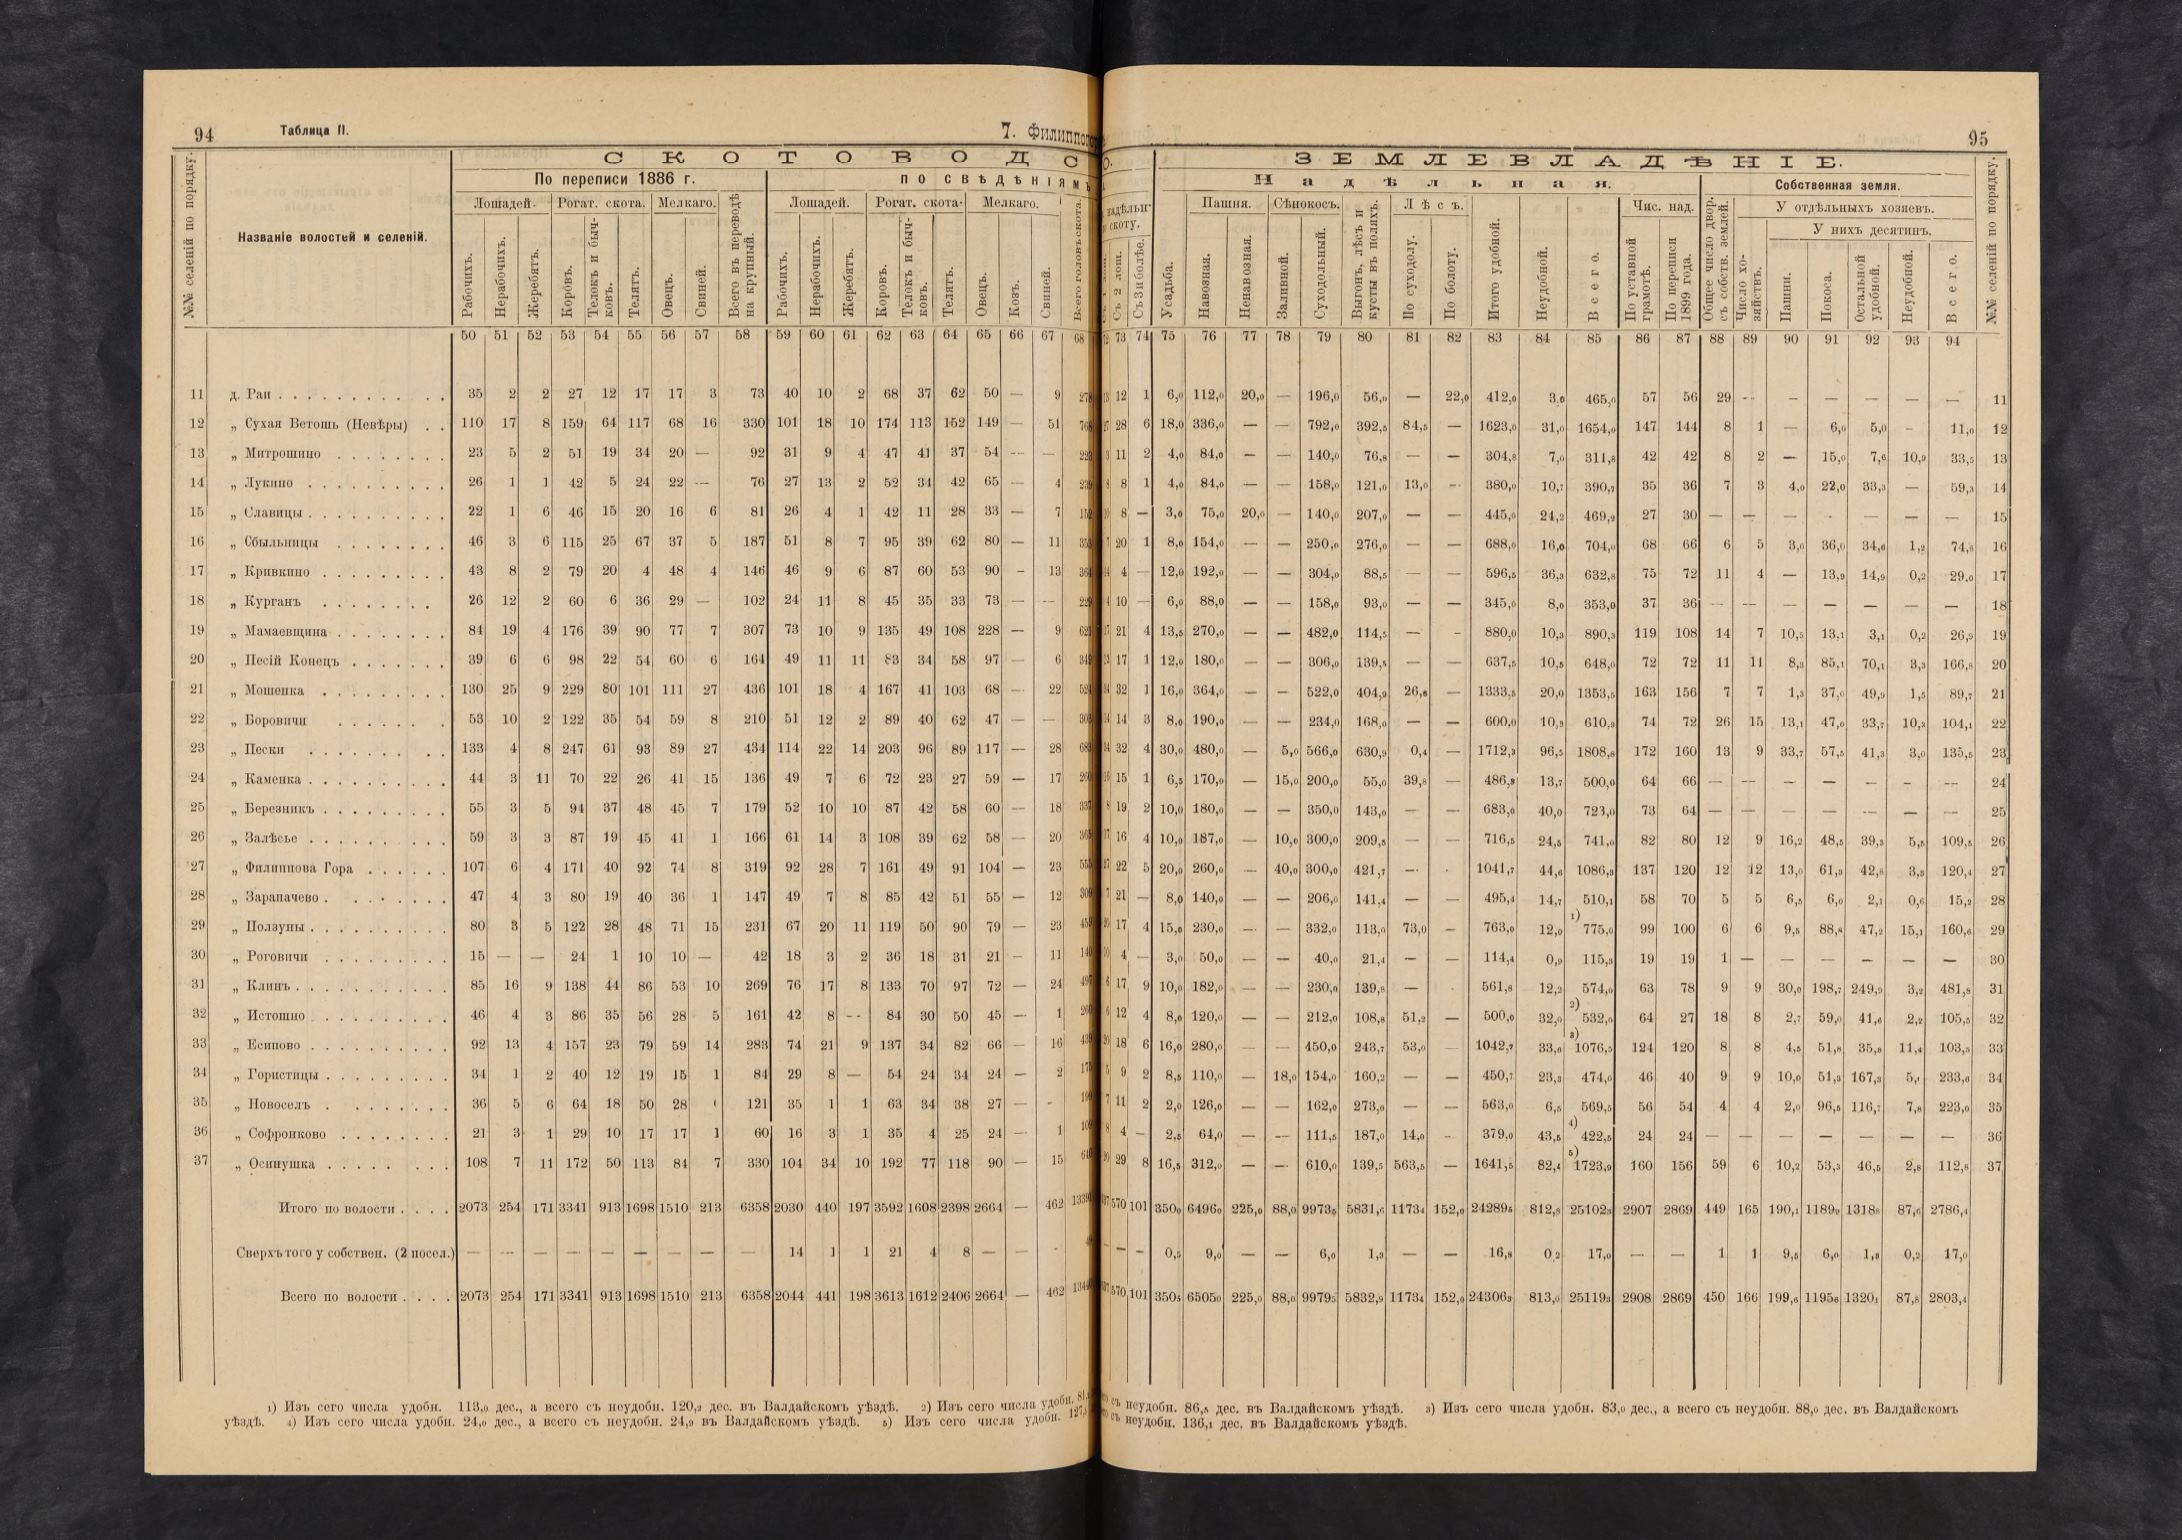 94 Таблица II. 7. Филиппогор
СКОТОВОДС
По переписи 1886 г. по свѣдѣніямъ
Лошадей. Рогат. скота. Мелкаго. Лошадей. Рогат. скота. Мелкаго.
№№ селеній по порядку. Названіе волостей и селеній. Рабочихъ. Нерабочихъ. Жеребятъ. Коровъ. Телокъ и бычковъ. Телятъ. Овецъ. Свиней. Всего въ переводѣ на крупный. Рабочихъ. Нерабочихъ. Жеребятъ. Коровъ. Телокъ и бычковъ. Телятъ. Овецъ. Козъ. Свиней. Всего головъ скота.
50 51 52 53 54 55 56 57 58 59 60 61 62 63 64 65 66 67 68
11 д. Раи 35 2 2 27 12 17 17 3 73 40 10 2 68 37 62 50 — 9
12 „ Сухая Ветошь (Невѣры) 110 17 8 159 64 117 68 16 330 101 18 10 174 113 152 149 — 51
13 „ Митрошино 23 5 2 51 19 34 20 — 92 31 9 4 47 41 37 54 — —
14 „ Лукино 26 1 1 42 5 24 22 — 76 27 13 2 52 34 42 65 — 4
15 „ Славицы 22 1 6 46 15 20 16 6 81 26 4 1 42 11 28 33 — 7
16 „ Сбыльницы 46 3 6 115 25 67 37 5 187 51 8 7 95 39 62 80 — 11
17 „ Кривкино 43 8 2 79 20 4 48 4 146 46 9 6 87 60 53 90 – 13
18 „ Курганъ 26 12 2 60 6 36 29 — 102 24 11 8 45 35 33 73 — —
19 „ Мамаевщина 84 19 4 176 39 90 77 7 307 73 10 9 135 49 108 228 — 9
20 „ Песій Конецъ 39 6 6 98 22 54 60 6 164 49 11 11 83 34 58 97 — 6
21 „ Мошенка 130 25 9 229 80 101 111 27 436 101 18 4 167 41 103 68 — 22
22 „ Боровичи 53 10 2 122 35 54 59 8 210 51 12 2 89 40 62 47 — —
23 „ Пески 133 4 8 247 61 93 89 27 434 114 22 14 203 96 89 117 — 28
24 „ Каменка 44 3 11 70 22 26 41 15 136 49 7 6 72 23 27 59 — 17
25 „ Березникъ 55 3 5 94 37 48 45 7 179 52 10 10 87 42 58 60 — 18
26 „ Залѣсье 59 3 3 87 19 45 41 1 166 61 14 3 108 39 62 58 — 20
27 „ Филиппова Гора 107 6 4 171 40 92 74 8 319 92 28 7 161 49 91 104 — 23
28 „ Зарапачево 47 4 3 80 19 40 36 1 147 49 7 8 85 42 51 55 — 12
29 „ Ползуны 80 3 5 122 28 48 71 15 231 67 20 11 119 50 90 79 — 23
30 „ Роговичи 15 — — 24 1 10 10 — 42 18 3 2 36 18 31 21 – 11
31 „ Клинъ 85 16 9 138 44 86 53 10 269 76 17 8 133 70 97 72 — 24
32 „ Истошно 46 4 3 86 35 56 28 5 161 42 8 — 84 30 50 45 — 1
33 „ Есипово 92 13 4 157 23 79 59 14 283 74 21 9 137 34 82 66 — 16
34 „ Гористицы 34 1 2 40 12 19 15 1 84 29 8 — 54 24 34 24 — 2
35 „ Новоселъ 36 5 6 64 18 50 28 121 35 1 1 63 34 38 27 — -
36 „ Софронково 21 3 1 29 10 17 17 1 60 16 3 1 35 4 25 24 — 1
37 „ Осинушка 108 7 11 172 50 113 84 7 330 104 34 10 192 77 118 90 — 15
Итого по волости 2073 254 171 3341 913 1698 1510 213 6358 2030 440 197 3592 1608 2398 2664 — 462
Сверхъ того у собствен. (2 посел.) — — — — — — — — — 14 1 1 21 4 8 — — -
Всего по волости 2073 254 171 3341 913 1698 1510 213 6358 2044 441 198 3613 1612 2406 2664 — 462
1) Изъ сего числа удобн. 113,0 дес., а всего съ неудобн. 120,2 дес. въ Валдайскомъ уѣздѣ. 2) Изъ сего числа удобн.
уѣздѣ. 4) Изъ сего числа удобн. 24,0 дес., а всего съ неудобн. 24,9 въ Валдайскомъ уѣздѣ. 5) Изъ сего числа удобн.
95
О. ЗЕМЛЕВЛАДѢНІЕ.
Надѣльная. Собственная земля.
надѣльн. скоту. Пашня. Сѣнокосъ. Лѣсъ. Чис. над. У отдѣльныхъ хозяевъ.
У нихъ десятинъ.
Съ 2 лош. Съ 3 и болѣе. Усадьба. Навозная. Ненавозная. Заливной. Суходольный. Выгонъ, лѣсъ и кусты въ поляхъ. По суходолу. По болоту. Итого удобной. Неудобной. Всего. По уставной грамотѣ. По переписи 1899 года. Общее число двор. съ собств. землей. Число хозяйствъ. Пашни. Покоса. Остальной удобной. Неудобной. Всего. №№ селеній по порядку.
73 74 75 76 77 78 79 80 81 82 83 84 85 86 87 88 89 90 91 92 93 94
12 1 6,0 112,0 20,0 — 196,0 56,0 — 22,0 412,0 3,0 465,0 57 56 29 — — — — — — 11
28 6 18,0 336,0 — — 792,0 392,5 84,5 — 1623,0 31,0 1654,0 147 144 8 1 — 6,0 5,0 – 11,0 12
11 2 4,0 84,0 — — 140,0 76,8 — — 304,8 7,0 311,8 42 42 8 2 — 15,0 7,6 10,9 33,5 13
8 1 4,0 84,0 — — 158,0 121,0 13,0 — 380,0 10,7 390,7 35 36 7 3 4,0 22,0 33,3 — 59,3 14
8 — 3,0 75,0 20,0 — 140,0 207,0 — — 445,0 24,2 469,2 27 30 — — — — — — — 15
20 1 8,0 154,0 — — 250,0 276,0 — — 688,0 16,0 704,0 68 66 6 5 3,0 36,0 34,6 1,2 74,8 16
4 — 12,0 192,0 — — 304,0 88,5 — — 596,5 36,3 632,8 75 72 11 4 — 13,9 14,9 0,2 29,0 17
10 — 6,0 88,0 — — 158,0 93,0 — — 345,0 8,0 353,0 37 36 — — — — — — — 18
21 4 13,5 270,0 — — 482,0 114,5 — - 880,0 10,3 890,3 119 108 14 7 10,5 13,1 3,1 0,2 26,9 19
17 1 12,0 180,0 — — 306,0 139,5 — — 637,5 10,5 648,0 72 72 11 11 8,3 85,1 70,1 3,3 166,8 20
32 1 16,0 364,0 — — 522,0 404,9 26,6 — 1333,5 20,0 1353,5 163 156 7 7 1,3 37,0 49,9 1,5 89,7 21
14 3 8,0 190,0 — — 234,0 168,0 — — 600,0 10,3 610,3 74 72 26 15 13,1 47,0 33,7 10,3 104,1 22
32 4 30,0 480,0 — 5,0 566,0 630,9 0,4 — 1712,3 96,5 1808,8 172 160 13 9 33,7 57,5 41,3 3,0 135,5 23
15 1 6,5 170,0 — 15,0 200,0 55,0 39,8 — 486,3 13,7 500,0 64 66 — — — — — — — 24
19 2 10,0 180,0 — — 350,0 143,0 — — 683,0 40,0 723,0 73 64 — — — — — — — 25
16 4 10,0 187,0 — 10,0 300,0 209,5 — — 716,5 24,5 741,0 82 80 12 9 16,2 48,5 39,3 5,5 109,5 26
22 5 20,0 260,0 — 40,0 300,0 421,7 — · 1041,7 44,6 1086,3 137 120 12 12 13,0 61,3 42,8 3,3 120,4 27
21 — 8,0 140,0 — — 206,0 141,4 — — 495,4 14,7 510,1 58 70 5 5 6,5 6,0 2,1 0,6 15,2 28
17 4 15,0 230,0 — — 332,0 113,0 73,0 — 763,0 12,0 1) 775,0 99 100 6 6 9,5 88,8 47,2 15,1 160,6 29
4 — 3,0 50,0 — — 40,0 21,4 — — 114,4 0,9 115,3 19 19 1 — — — — — — 30
17 9 10,0 182,0 — — 230,0 139,8 — · 561,8 12,2 574,0 63 78 9 9 30,0 198,7 249,9 3,2 481,8 31
12 4 8,0 120,0 — — 212,0 108,8 51,2 — 500,0 32,0 2) 532,0 64 27 18 8 2,7 59,0 41,6 2,2 105,5 32
18 6 16,0 280,0 — — 450,0 243,7 53,0 — 1042,7 33,8 3) 1076,5 124 120 8 8 4,5 51,8 35,8 11,4 103,5 33
9 2 8,5 110,0 — 18,0 154,0 160,2 — — 450,7 23,3 474,0 46 40 9 9 10,0 51,3 167,3 5,1 233,6 34
11 2 2,0 126,0 — — 162,0 273,0 — — 563,0 6,5 569,5 56 54 4 4 2,0 96,5 116,7 7,8 223,0 35
4 — 2,5 64,0 — — 111,5 187,0 14,0 - 379,0 43,5 4) 422,5 24 24 — — — — — — — 36
29 8 16,5 312,0 — — 610,0 139,5 563,5 — 1641,5 82,4 5) 1723,9 160 156 59 6 10,2 53,3 46,5 2,8 112,8 37
570 101 3500 64960 225,0 88,0 99735 5831,6 11734 152,0 242895 812,8 251023 2907 2869 449 165 190,1 11899 13188 87,6 2786,4
— — 0,5 9,0 — — 6,0 1,3 — — 16,8 0,2 17,0 — — 1 1 9,5 6,0 1,3 0,2 17,0
570 101 3505 65050 225,0 88,0 99795 5832,9 11734 152,0 243063 813,0 251193 2908 2869 450 166 199,6 11956 13201 87,8 2803,4
съ неудобн. 86,5 дес. въ Валдайскомъ уѣздѣ. 3) Изъ сего числа удобн. 83,0 дес., а всего съ неудобн. 88,0 дес. въ Валдайскомъ
съ неудобн. 136,1 дес. въ Валдайскомъ уѣздѣ.